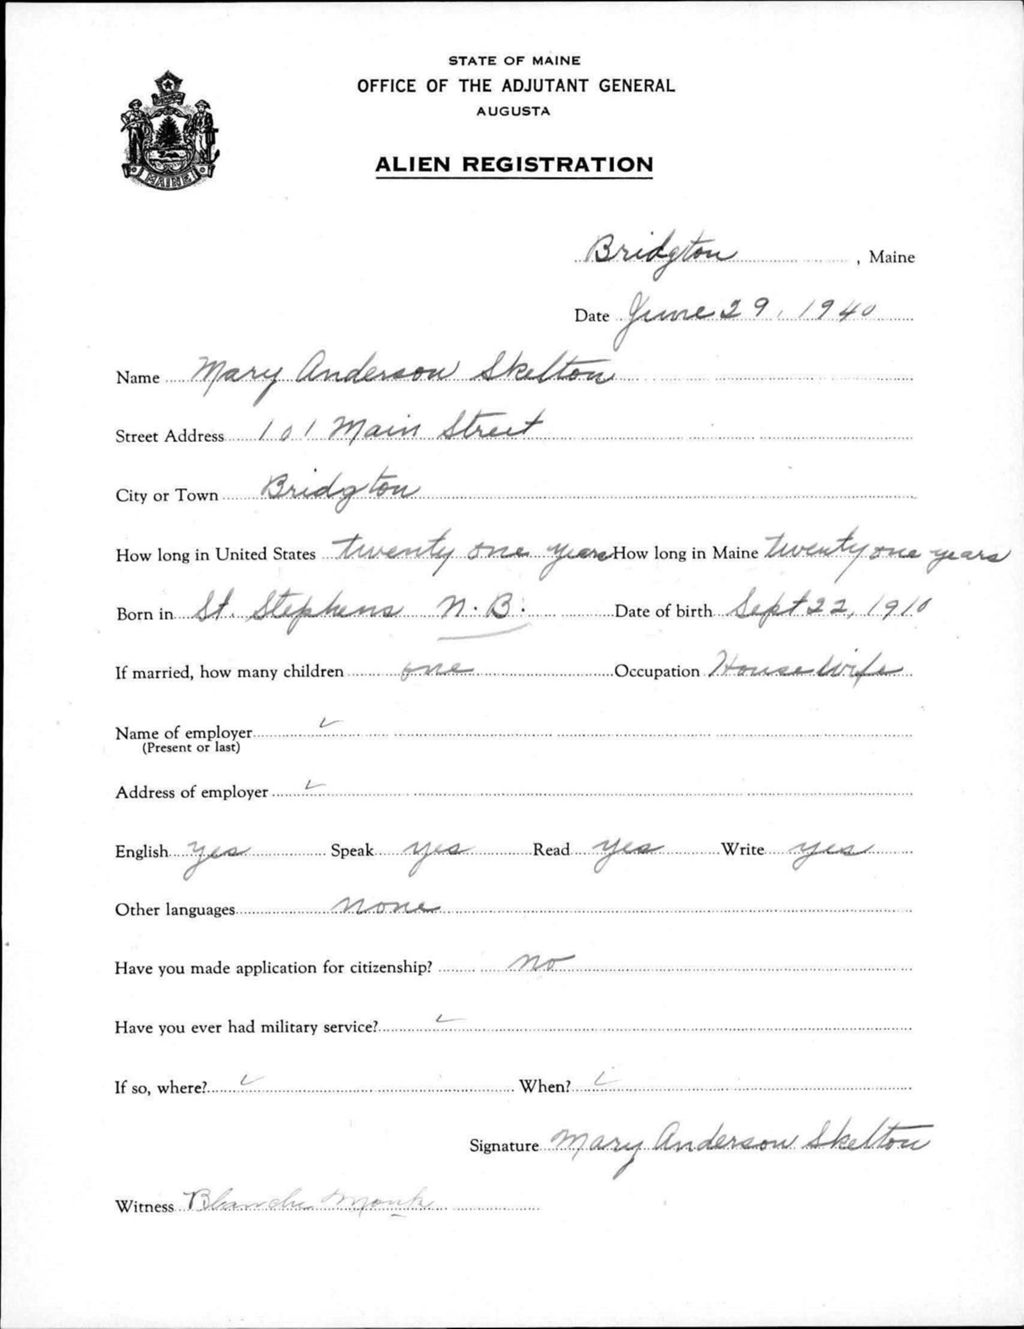 STATE OF MAINE
OFFICE OF THE ADJUTANT GENERAL
AUGUSTA
ALIEN REGISTRATION
MAINE
Bridgton, Maine
Date June 29, 1940
Name Mary Anderson Skelton
Street Address 101 Main Street
City or Town Bridgton
How long in United States twenty one years How long in Maine twenty one years
Born in St. Stephens N.B. Date of birth Sept 22, 1910
If married, how many children one Occupation Housewife
Name of employer ✓
(Present or last)
Address of employer ✓
English yes Speak yes Read yes Write yes
Other languages none
Have you made application for citizenship? no
Have you ever had military service? ✓
If so, where? ✓ When? ✓
Signature Mary Anderson Skelton
Witness Blanche Monk